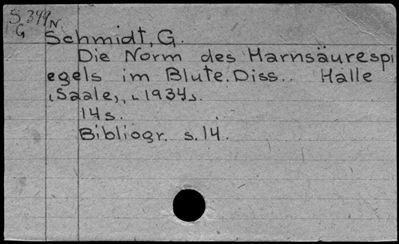 S.399N.
G
Schmidt, G.
Die Norm des Harnsäurespi
egels im Blute. Diss.. Halle
(Saale), 1934.
14 s.
Bibliogr. s. 14.